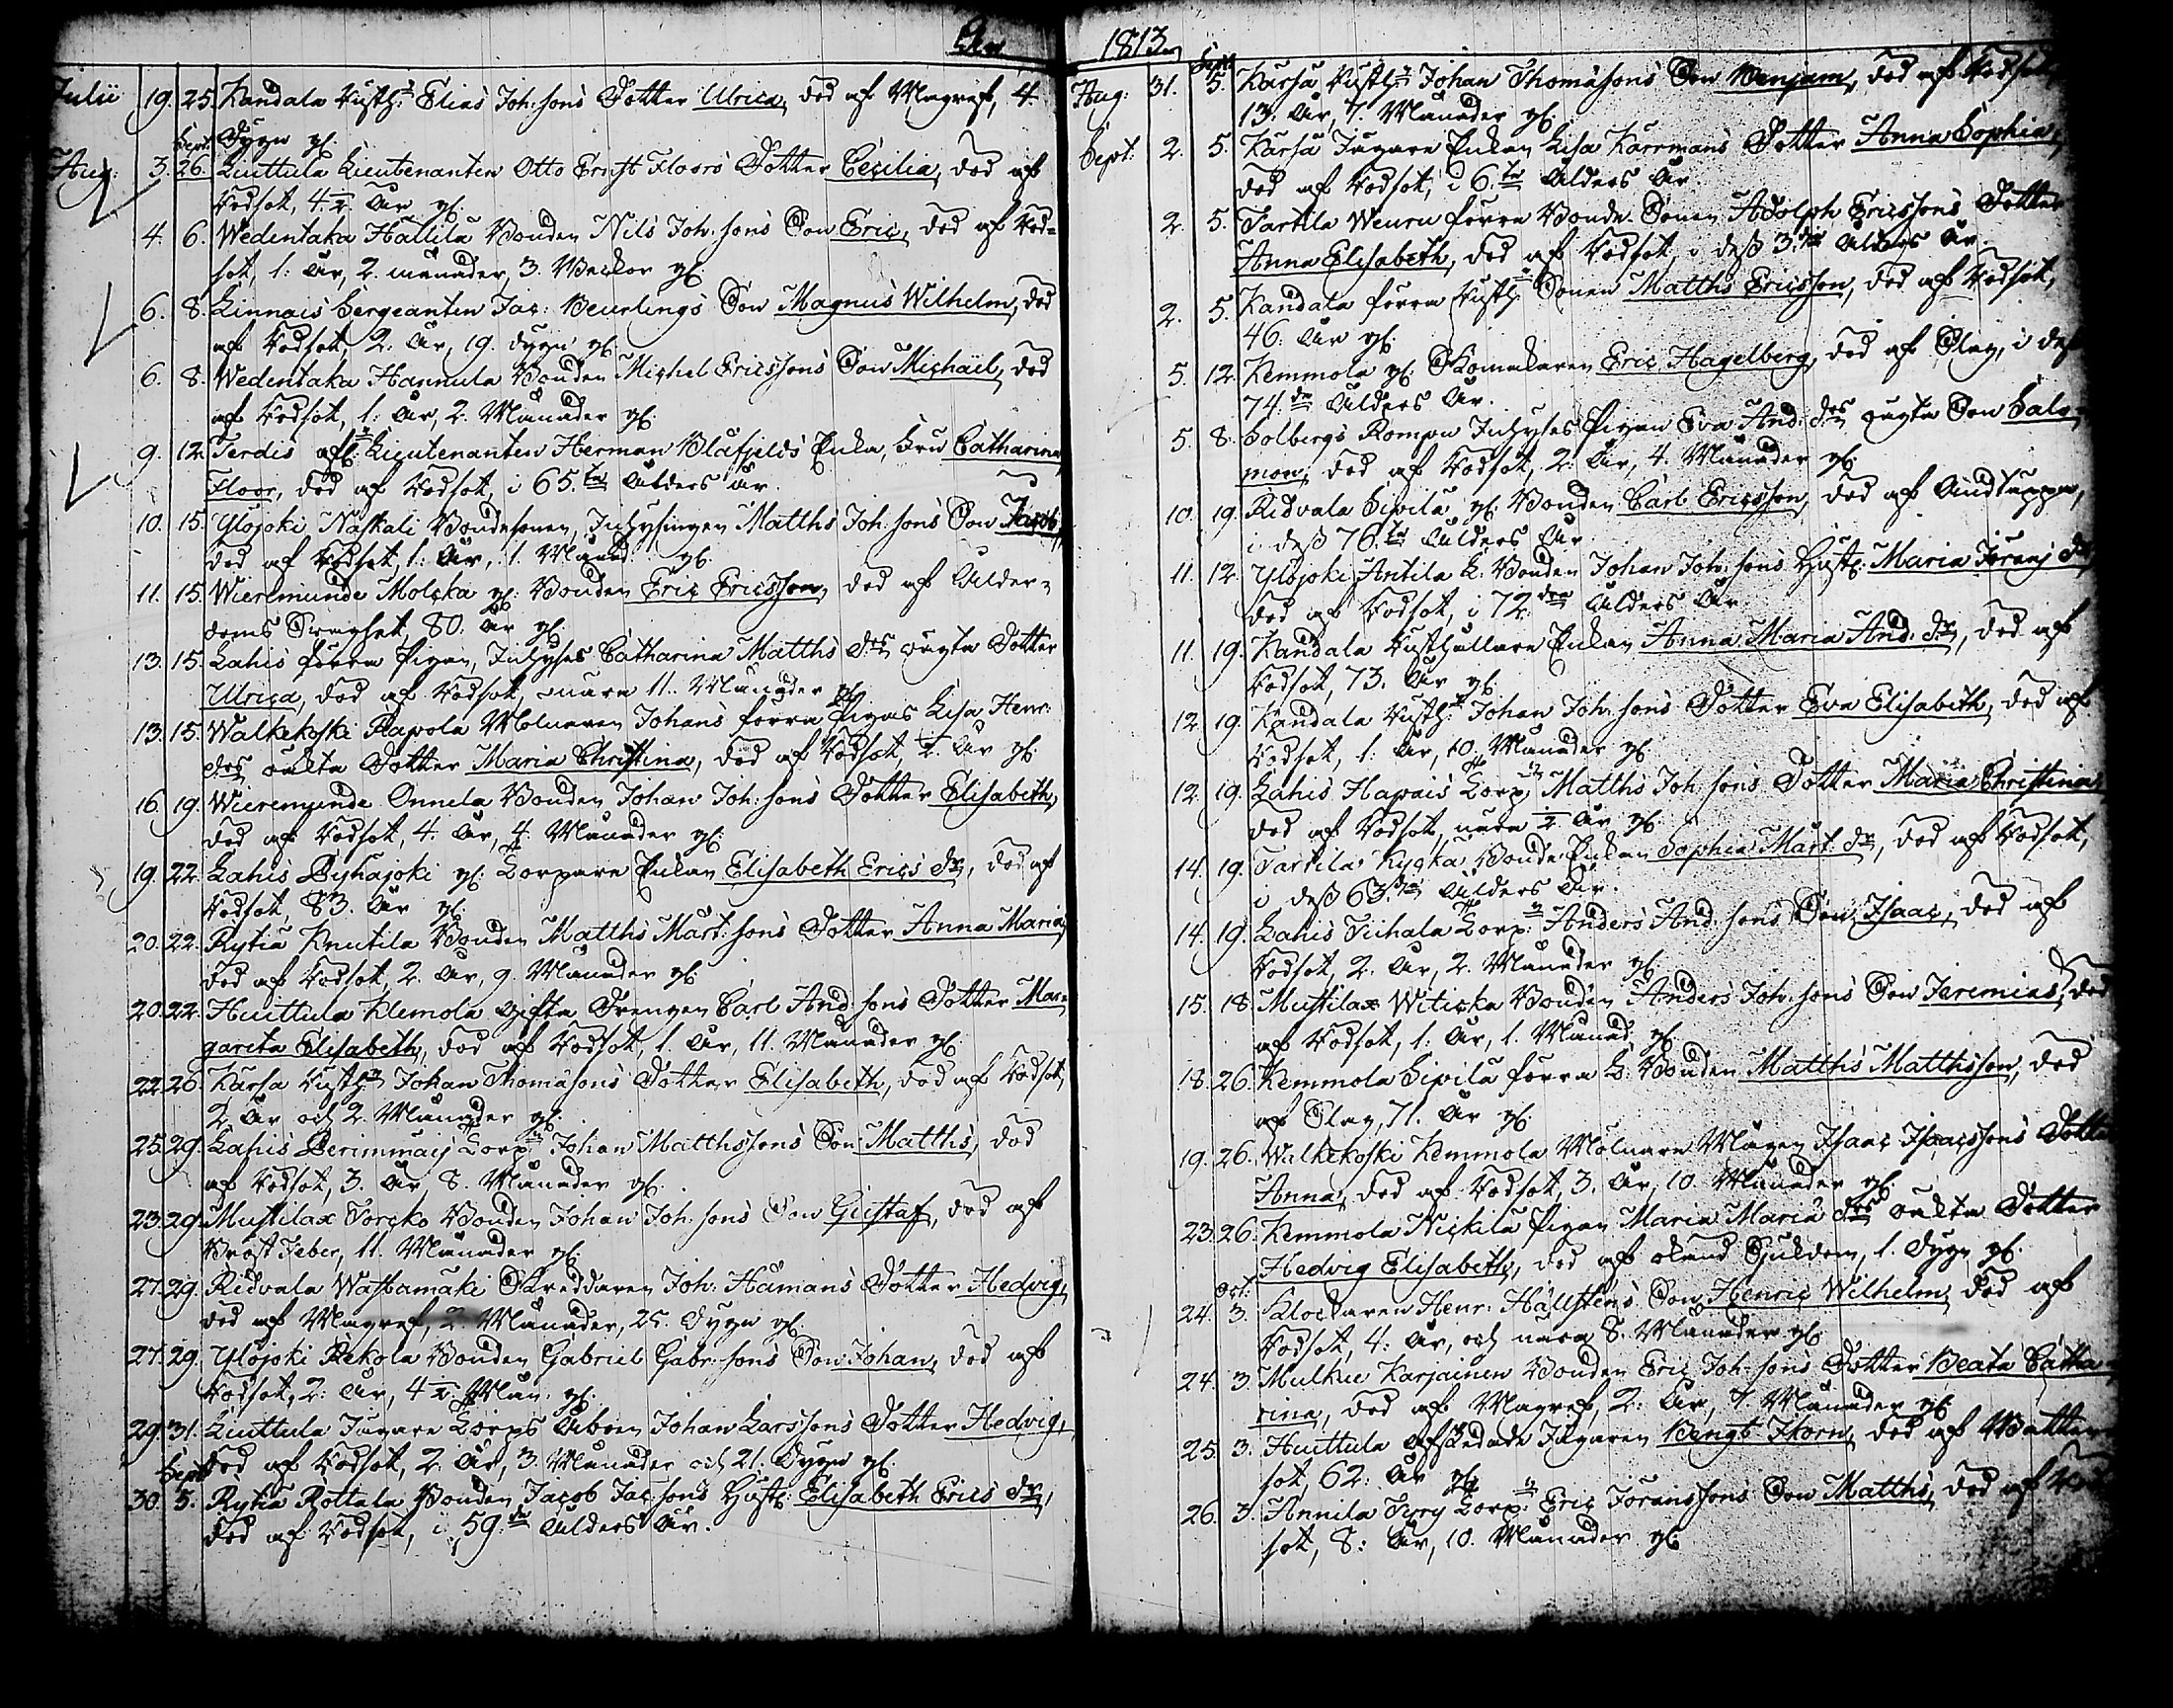 Åhr
Julii 19. 25. Kandala Rusth:ns Elias Joh:sons Dotter Ulrica, död af Magref, 4.
Dygn gl.
Aug: 3. Sept: 26. Luttula Lieutenanten Otto Ernst Floors Dotter Cecilia, död af
Rödsot, 4. 1/2 År gl.
4. 6. Wedentaka Hallila Bonden Nils Joh:sons Son Eric, död af Röd=
sot, 1: År, 2. månader, 3. Veckor gl.
6. 8. Linnais Sergeanten Jac: Beurlings Son Magnus Wilhelm, död
af Rödsot, 2: År, 19. dygn gl.
6. 8. Wedentaka Hannula Bonden Michel Ericssons Son Michäel, död
af Rödsot, 1: År, 2. Månader gl.
9. 12. Terdis afl: Lieutenanten Herman Blåfjelds Enka, Fru Catharina
Floor, död af Rödsot, i 65.te Ålders År.
10. 15. Ylöjoki Naskali Bondesonen, Inhysingen Matths Joh:sons Son Jacob,
död af Rödsot, 1: År, 1. Månad gl.
11. 15. Wieremunde Molcka gl: Bonden Eric Ericsson, död af Ålder=
doms Svaghet, 80. År gl.
13. 15. Lahis förra Pigan, Inhyses Catharina Matths d:rs oägta Dotter
Ulrica, död af Rödsot, nära 11. Månader gl.
13. 15. Walkekoski Rapola Mölnaren Johans förra Pigas Lisa Henr:
d:rs oäkta Dotter Maria Christina, död af Rödsot, 1/2 År gl.
16. 19. Wieremunde Onnela Bonden Johan Joh:sons Dotter Elisabeth,
död af Rödsot, 4. År, 4. Månader gl.
19. 22. Lahis Pyhajoki gl: Torpare Enkan Elisabeth Erics d:r, död af
Rödsot, 83. År gl.
20. 22. Rytia Knutila Bonden Matths Mårt:sons Dotter Anna Maria,
död af Rödsot, 2. År, 9. Månader gl.
20. 22. Huittula Klemola gifta Drengen Carl And:sons Dotter Mar=
gareta Elisabeth, död af Rödsot, 1. År, 11. Månader gl.
22. 26. Karsa Rusth:n Johan Thomäsons Dotter Elisabeth, död af Rödsot,
2. År och 2. Månader gl.
25. 29. Lahis Perimmaij Torp:ns Johan Matthssons Son Matths, död
af Rödsot, 3. År, 8. Månader gl.
23. 29. Mustilax Torcko Bonden Johan Joh:sons Son Gustaf, död af
Bröst Feber, 11. Månader gl.
27. 29. Ridvala Wastamäki Skreddaren Joh: Hamans Dotter Hedvig,
död af Magref, 2. Månader, 25. Dygn gl.
27. 29. Ylöjoki Rekola Bonden Gabriel Gabr:sons Son Johan, död af
Rödsot, 2: År, 4 1/2 Mån: gl.
29. 31. Luttula Jägare Corps Oboen Johan Larssons Dotter Hedvig,
död af Rödsot, 2. År, 3. Månader och 21. Dygn gl.
30. Sept: 5. Rytia Rottala Bonden Jacob Jac:sons Hustr: Elisabeth Erics d:r,
död af Rödsot, i 59.de Ålders År.
1813
Aug: 31. Sept: 5. Karsa Rusth:ns Johan Thomäsons Son Benjam, död af Rödsot,
13. År, 7. Månader gl.
Sept: 2. 5. Karsa Jägare Enkan Lisa Karrmans Dotter Anna Sophia,
död af Rödsot, i 6.te Ålders År
2. 5. Tartila Weuru förra Bonde Sonen Adolph Ericssons Dotter
Anna Elisabeth, död af Rödsot, i dess 3.dje Ålders År.
2. 5. Kandala förra Rusth: Sonen Matths Ericsson, död af Rödsot,
46. År gl.
5. 12. Kemmola gl: Skomakaren Eric Hagelberg, död af Slag, i dess
74.de Ålders År.
5. 8. Solbergs Rompu Inhyses Pigan Eva And: d:rs oägta Son Salo=
mon, död af Rödsot, 2. År, 4. Månader gl.
10. 19. Ridvala Sipila gl: Bonden Carl Ericsson, död af Andtäppa,
i dess 76.te Ålders År
11. 12. Ylöjoki Antila L: Bonden Johan Joh:sons Hustr: Maria Joranj d:r
död af Rödsot, i 72.dra Ålders År.
11. 19. Kandala Rusthållare Enkan Anna Maria And: d:r, död af
Rödsot, 73. År gl.
12. 19. Kandala Rusth:ns Johan Joh:sons Dotter Eva Elisabeth, död af
Rödsot, 1: År, 10. Månader gl.
12. 19. Lahis Hapais Torp:ns Matths Joh:sons Dotter Maria Christina,
död af Rödsot, nära 1/2 År gl.
14. 19. Tartila Kycka Bonde Enkan Sophia Mårt: d:r, död af Rödsot,
i dess 63.dje Ålders År.
14. 19. Lahis Tichala Torp:ns Anders And:sons Son Isaac, död af
Rödsot, 2. År, 2. Månader gl.
15. 18. Mustilax Witicka Bonden Anders Joh:sons Son Jeremias, död
af Rödsot, 1: År, 1. Månad gl.
18. 26. Kemmola Sipila förra L: Bonden Matths Matthsson, död
af Slag, 71. År gl.
19. 26. Walkekoski Kemmola Mölnare Mågen Isaac Isaacssons Dotter
Anna, död af Rödsot, 3. År, 10. Månader gl.
23. 26. Kemmola Nickila Pigan Maria Maria d:rs oäkta Dotter
Hedvig Elisabeth, död af okänd Sjukdom, 1. Dygn gl.
24. Oct: 3. Klockaren Henr: Hällstens Son Henric Wilhelm, död af
Rödsot, 4: År, och nära 8. Månader gl.
24. 3. Mulkue Karjainen Bonden Eric Joh:sons Dotter Beata Catha
rina, död af Magref, 2: År, 7. Månader gl.
25. 3. Huittula Afskedade Jägaren Bengt Thorn, död af Watter
sot, 62: År gl.
26. 3. Annila Jyry Torp:ns Eric Joranssons Son Matths, död af Röd
sot, 8: År, 10. Månader gl